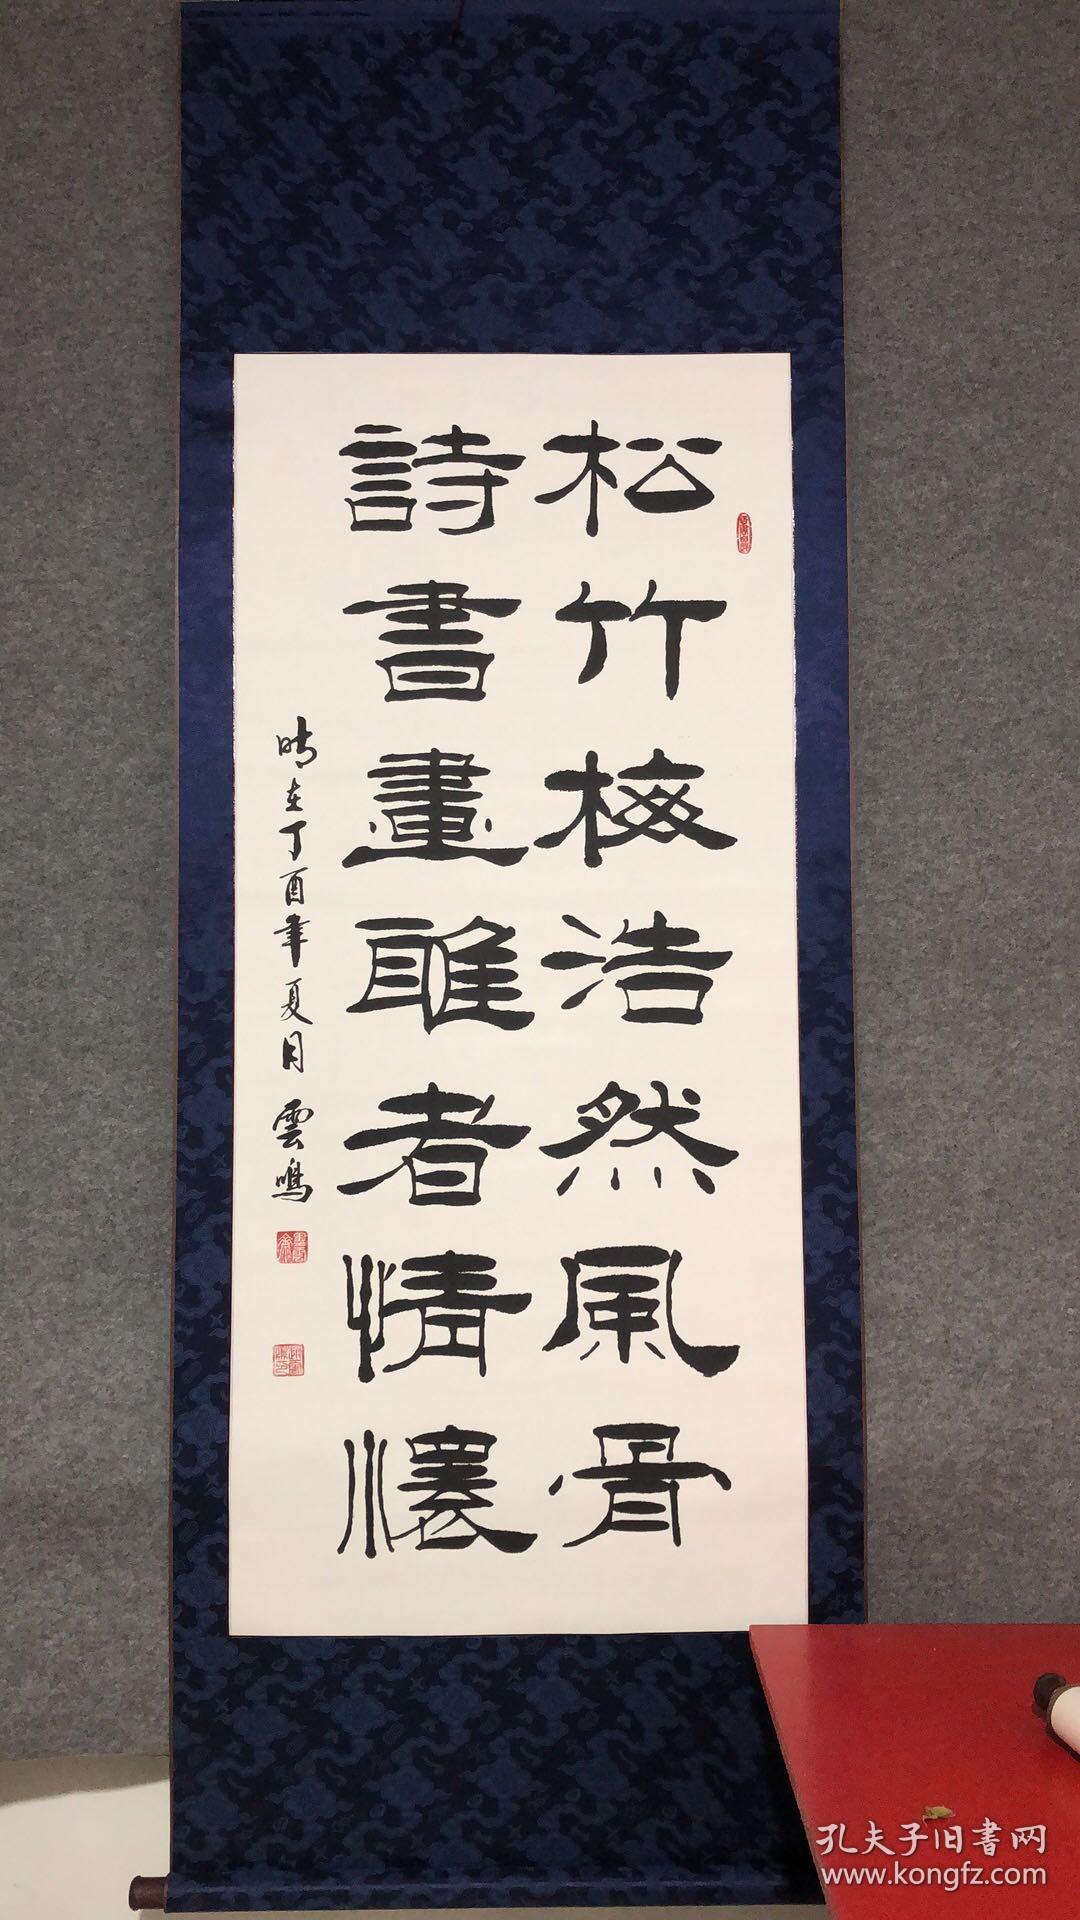 松竹梅浩然風骨
詩書畫雅者情懷
時在丁酉年夏月 雲鳴
孔夫子旧書网
www.kongfz.com